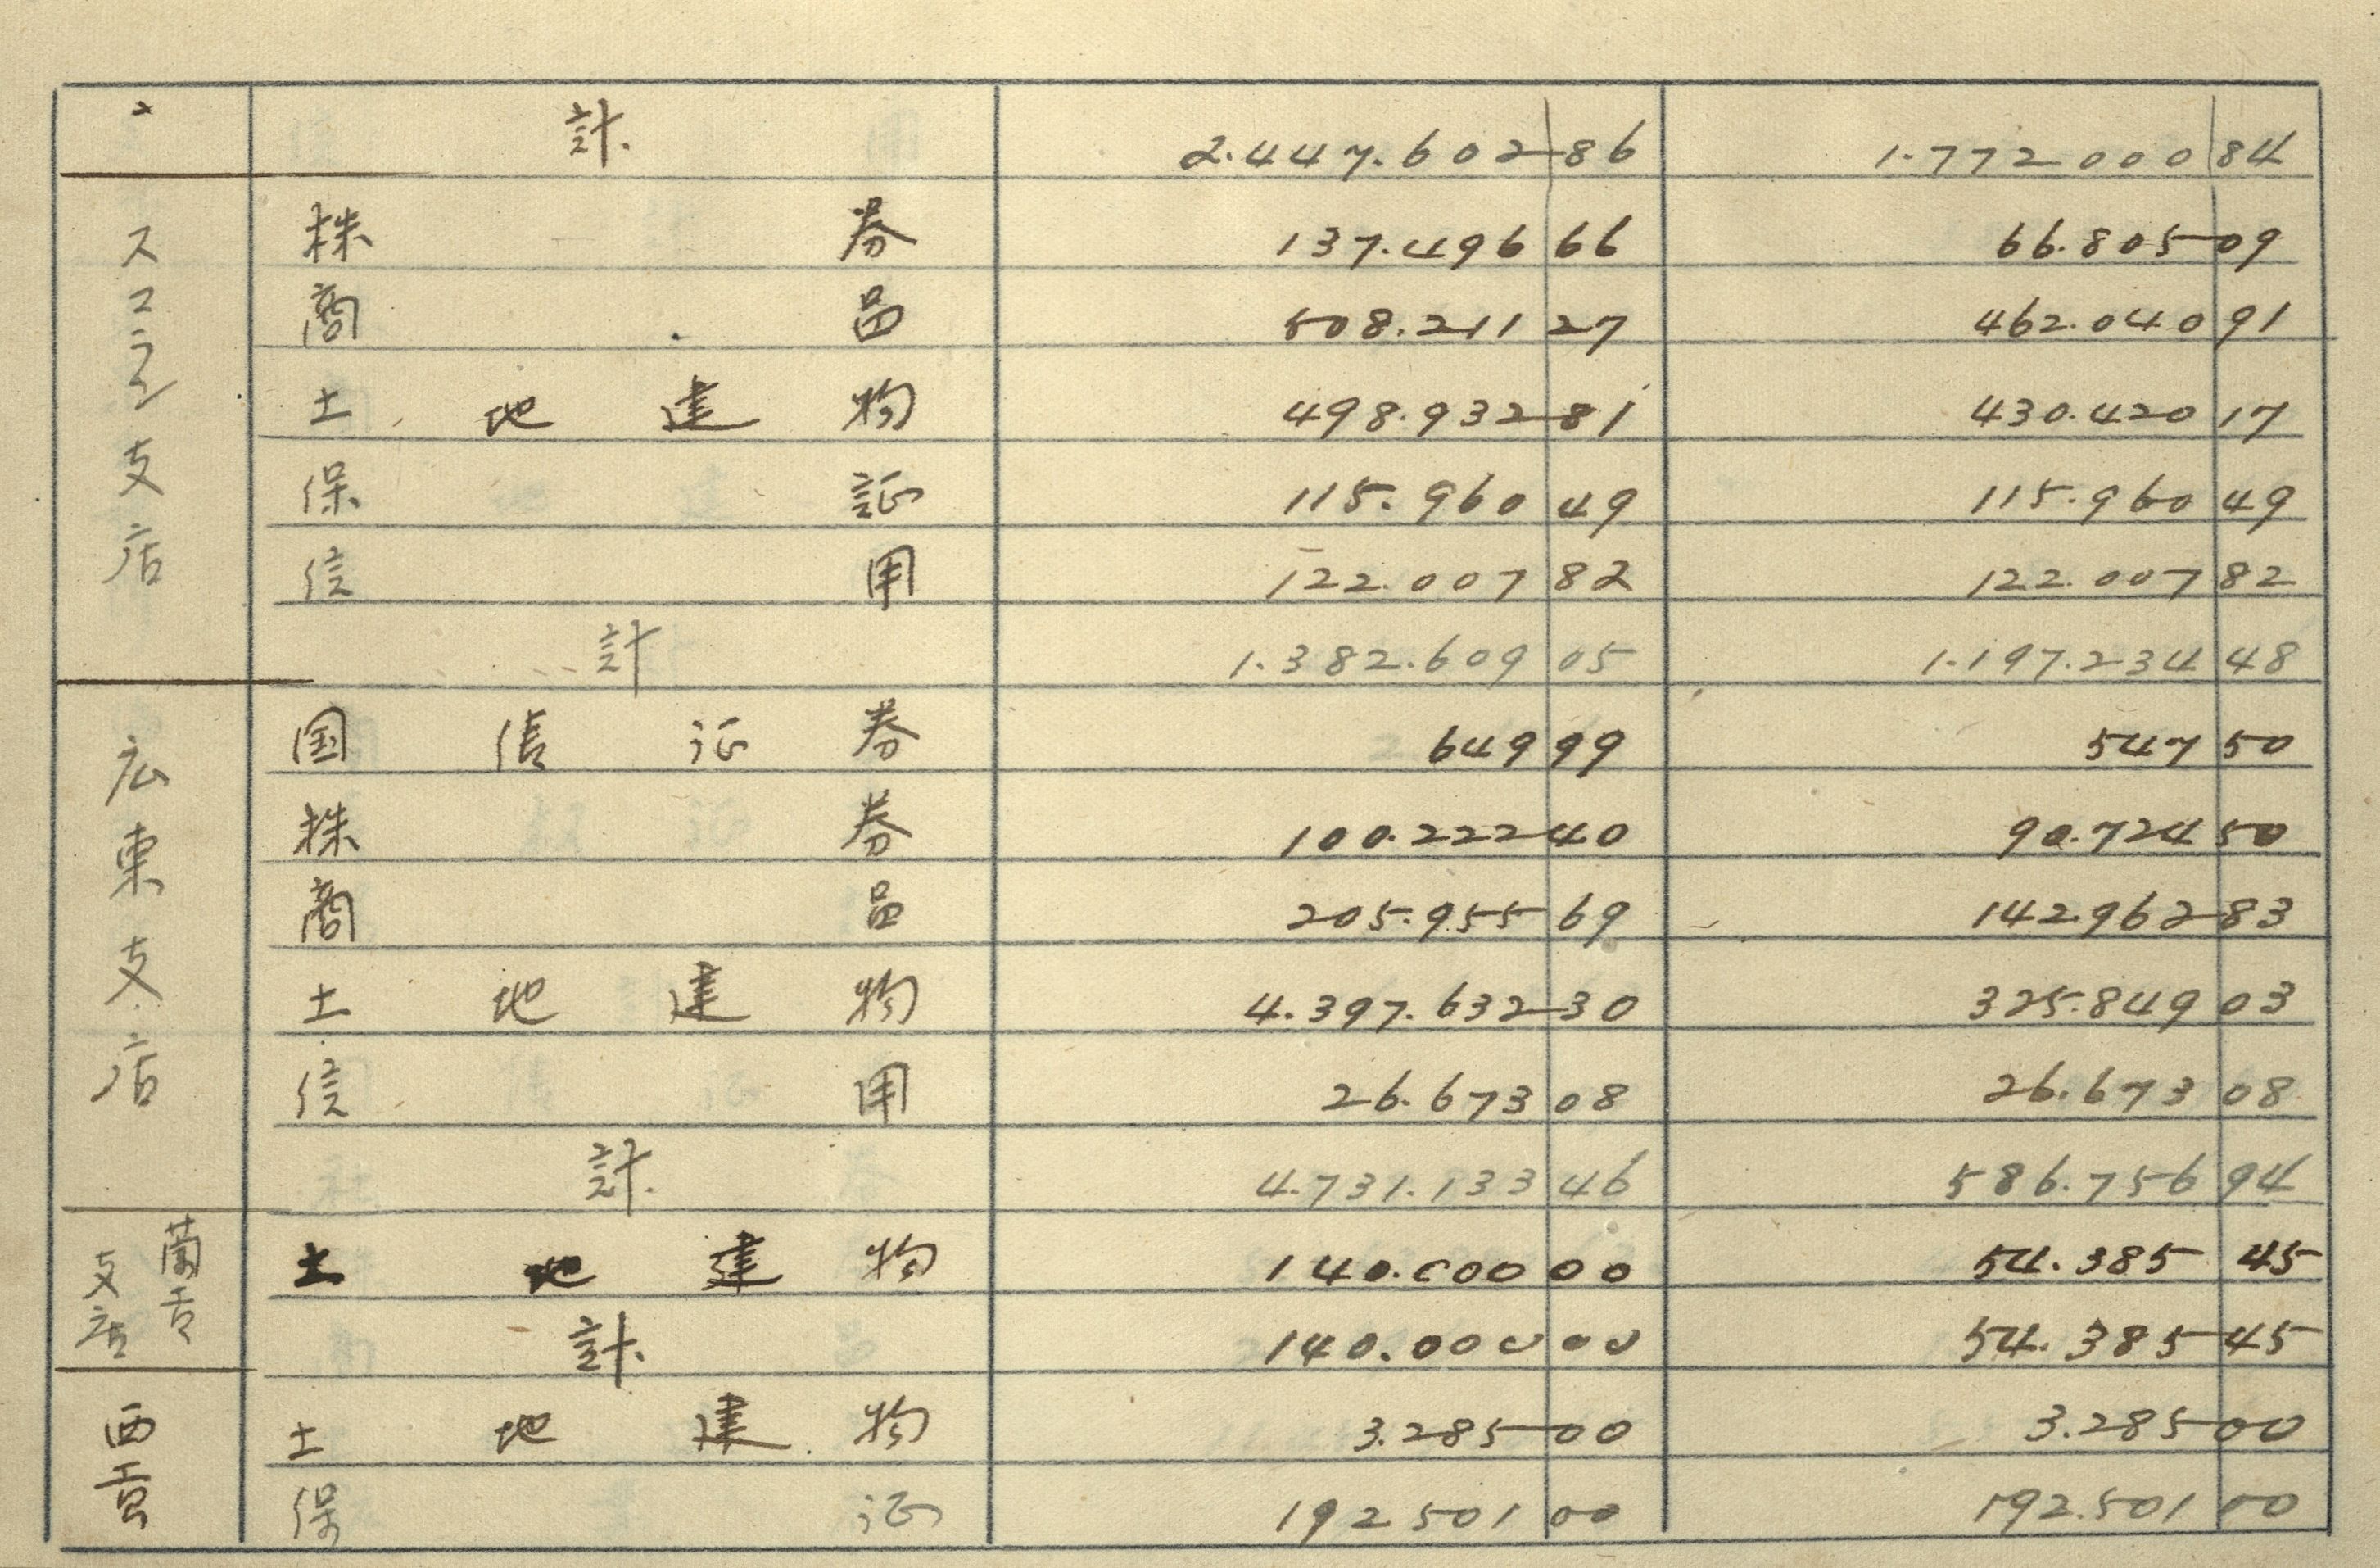 〃 計. 2.447.602 86 1.772000 84
スマラン支店 株券 137.496 66 66.805 09
商品 508.211 27 462.040 91
土地建物 498.932 81 430.420 17
保証 115.960 49 115.960 49
信用 122.007 82 122.007 82
計 1.382.609 05 1.197.234 48
広東支店 国債証券 649 99 547 50
株券 100.222 40 90.724 50
商品 205.955 69 142962 83
土地建物 4.397.632 30 325.849 03
信用 26.673 08 26.673 08
計. 4.731.133 46 586.756 94
支店 土地建物 140.000 00 54.385 45
計. 140.000 00 54.385 45
西貢 土地建物 3.285 00 3.285 00
保証 192501 00 192.501 00